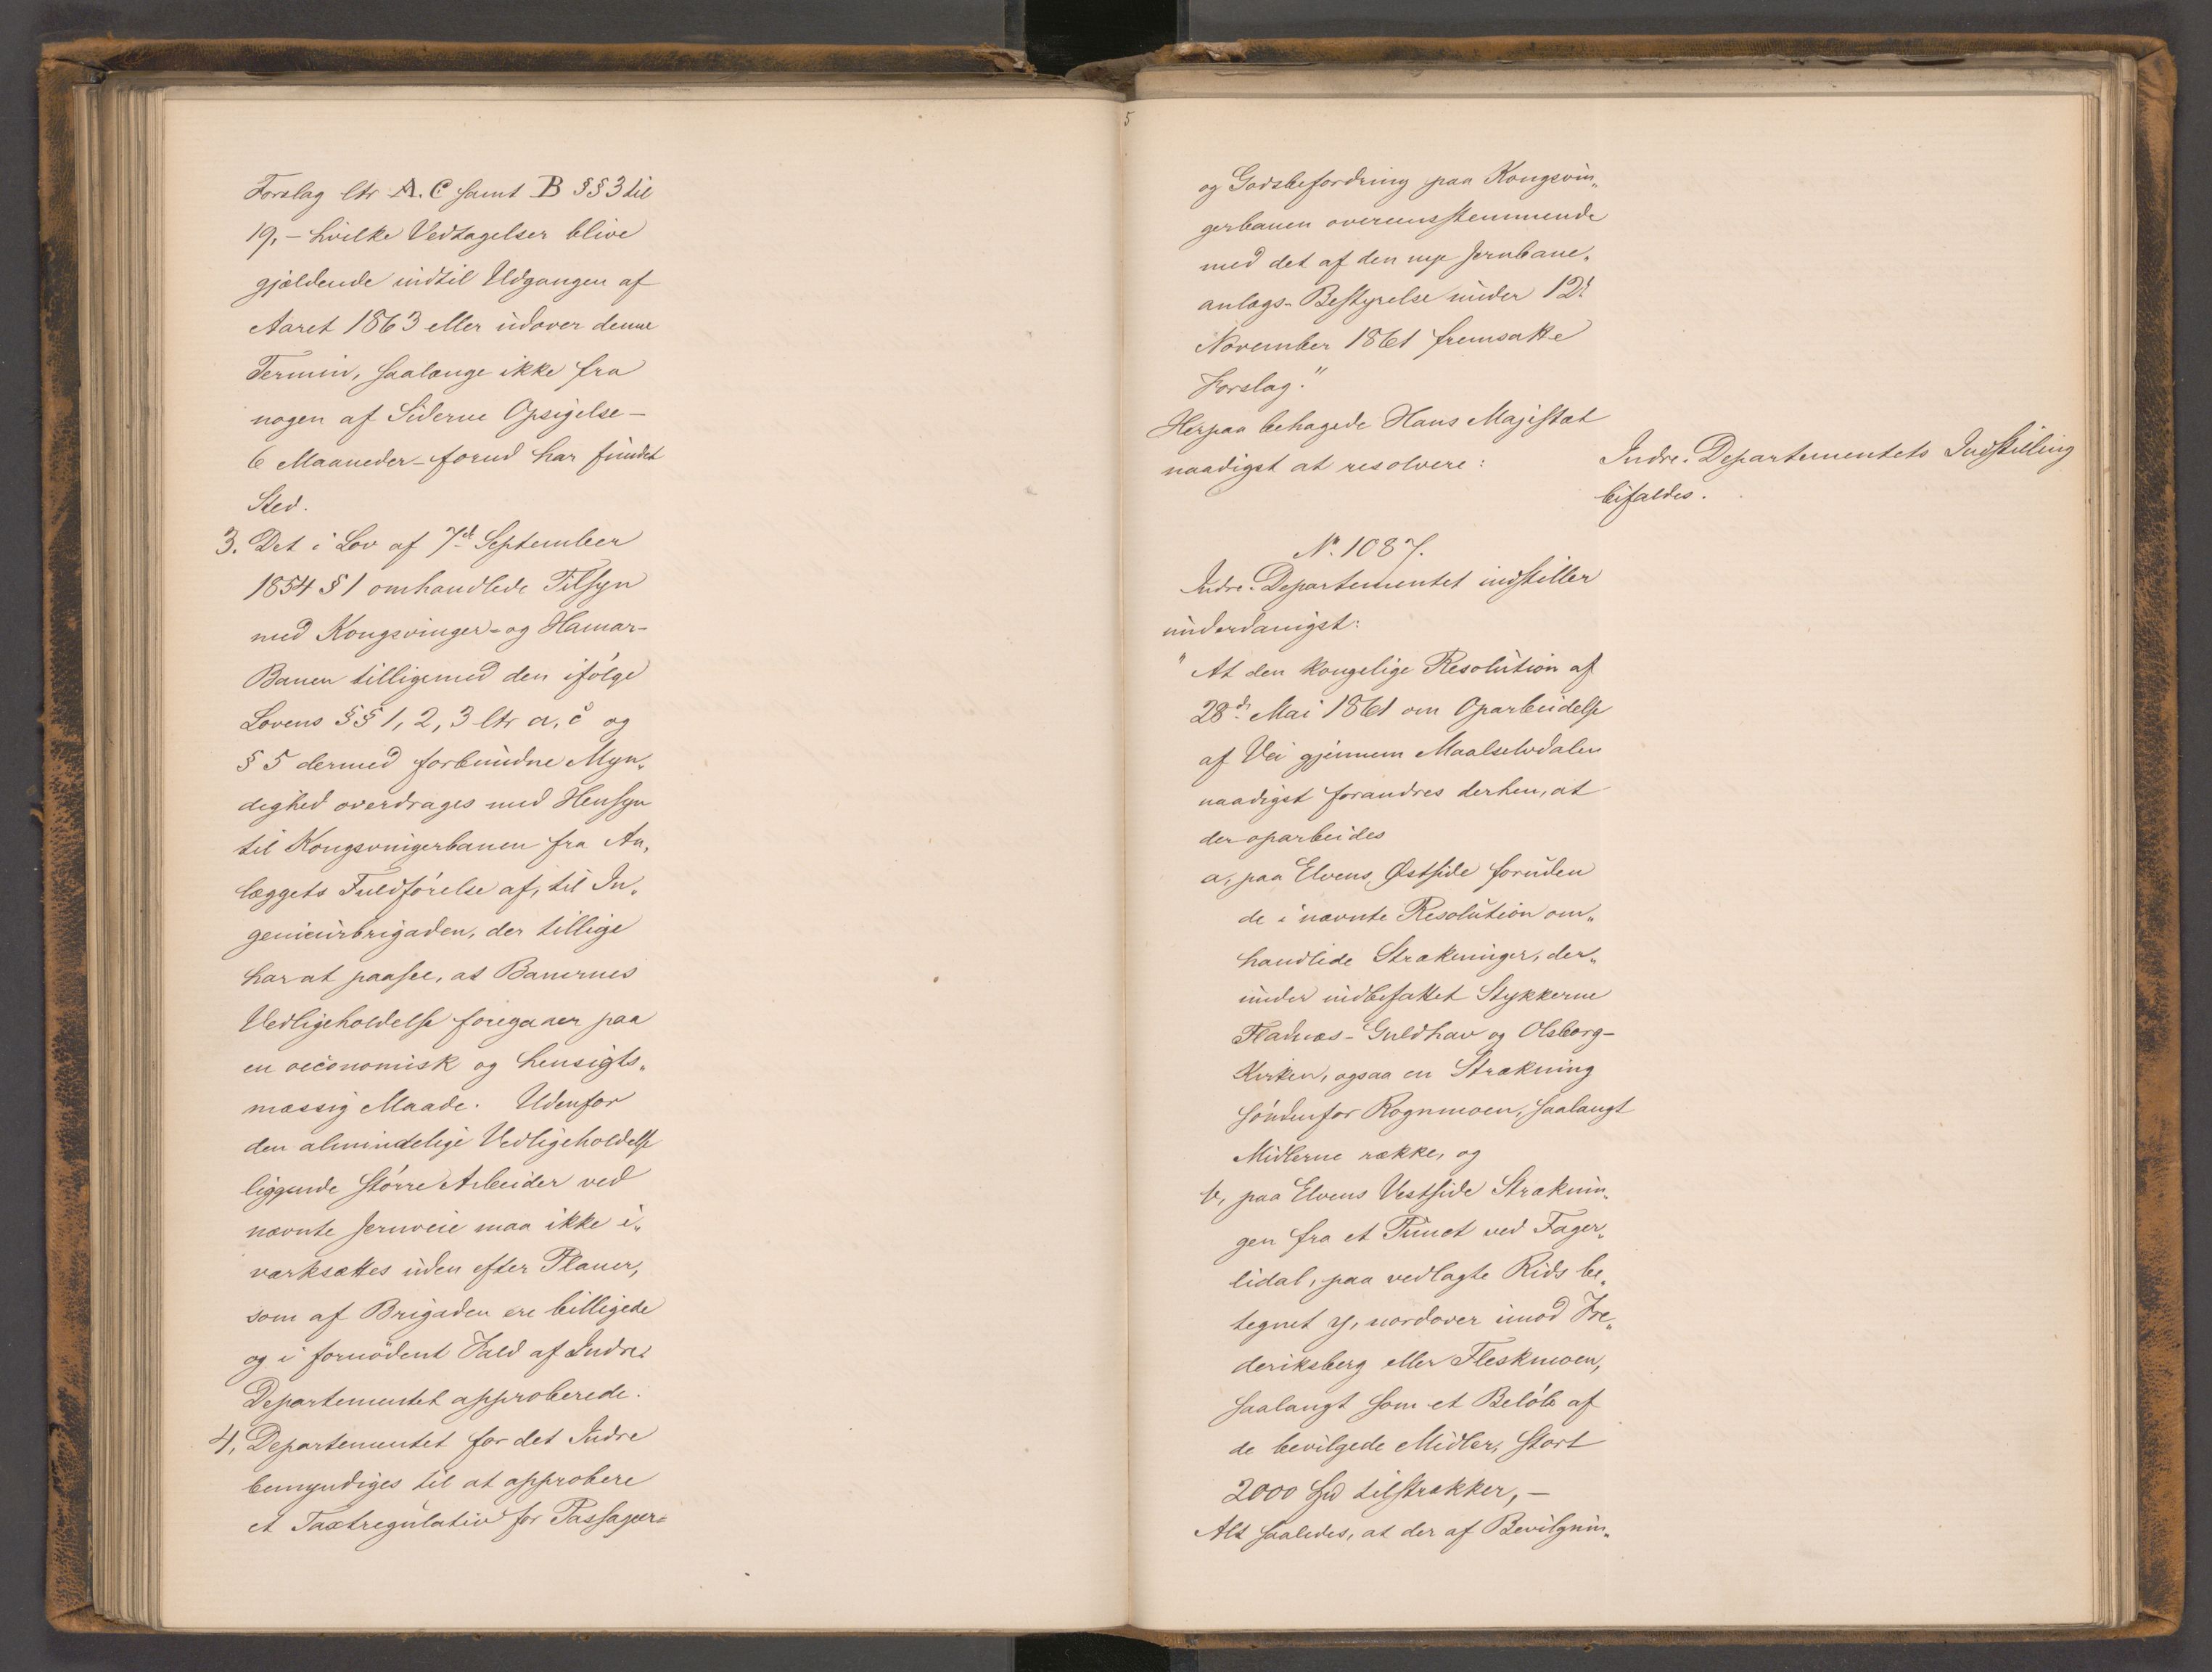 Forslag ltr A. C samt B §§ 3 til
19, - hvilke Vedtagelser blive
gjældende indtil Udgangen af
Aaret 1863 eller udover denne
Termin, saalænge ikke fra
nogen af Siderne Opsigelse -
6 Maaneder - forud har fundet
Sted.
3. Det i Lov af 7de September
1854 § 1 omhandlede Tilsyn
med Kongsvinger- og Hamar-
Banen tilligemed den ifølge
Lovens §§ 1, 2, 3 ltr a, c og
§ 5 dermed forbundne Myn„
dighed overdrages med Hensyn
til Kongsvingerbanen fra An„
læggets Fuldførelse af, til In„
genieurbrigaden, der tillige
har at paasee, at Banernes
Vedligeholdelse foregaaer paa
en oeconomisk og hensigts„
mæssig Maade. Udenfor
den almindelige Vedligeholdelse
liggende større Arbeider ved
nævnte Jernveie maa ikke i„
værksættes uden efter Planer,
som af Brigaden ere billigede
og i fornødent Fald af Indre-
Departementet approberede.
4, Departementet for det Indre
bemyndiges til at approbere
et Taxtregulativ for Passageer-
5
og Godsbefordring paa Kongsvin„
gerbanen overeensstemmende
med det af den nye Jernbane„
anlægs-Bestyrelse under 12te
November 1861 fremsatte
Forslag."
Herpaa behagede Hans Majestæt
naadigst at resolvere:
Indre-Departementets Indstilling
bifaldes.
No. 1087.
Indre-Departementet indstiller
underdanigst:
"At den kongelige Resolution af
28de Mai 1861 om Oparbeidelse
af Vei gjennem Maalselvdalen
naadigst forandres derhen, at
der oparbeides
a, paa Elvens Østside foruden
de i nævnte Resolution om„
handlede Strækninger, der„
under indbefattet Stykkerne
Fladnæs - Guldhav og Olsborg-
Kirken, ogsaa en Strækning
søndenfor Rognmoen, saalangt
Midlerne række, og
b, paa Elvens Vestside Stræknin„
gen fra et Punct ved Fager„
lidal, paa vedlagte Rids be„
tegnet y, nordover imod Fre„
deriksberg eller Fleskmoen,
saalangt som et Beløb af
de bevilgede Midler, stort
2000 Spd tilstrækker, -
Alt saaledes, at der af Bevilgnin„